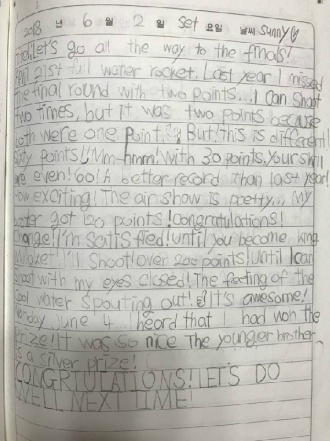 2018 년 6 월 2 일 Set 요일 날씨 sunny
Let's go all the way to the finals!
21st full water rocket. Last year I missed
the final round with two points... I can shoot
two times, but it was two points because
both were one point. But! this is different!
points! Mm-hmm! with 30 points. Your skill
are even! ooh A better record than last year!
how exciting! The air show is pretty... My
got 120 points! congratulations!
I'm satisfied! Until you become king
I'll shoot! over 200 points! Until I can
shoot with my eyes closed! The feeling of the
cool water spouting out! It's awesome!
June 4 heard that I had won the
prize! It was so nice The younger brother
is a silver prize!
CONGRTULATIONS! LET'S DO
WELL NEXT TIME!